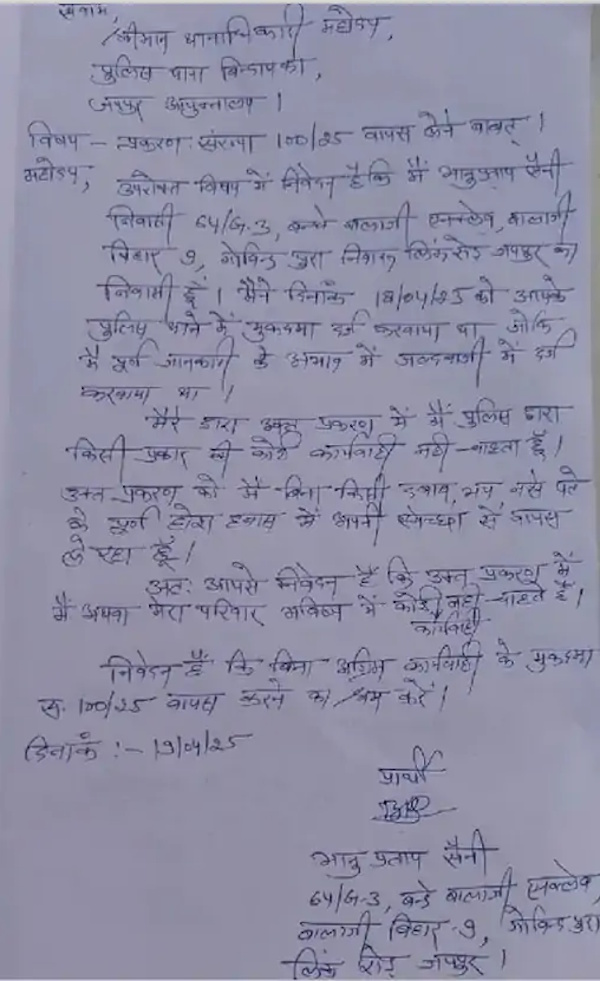 सेवामें,
श्रीमान थानाधिकारी महोदय,
पुलिस थाना बिन्दायका,
जयपुर आयुक्तालय ।
विषय - प्रकरण संख्या 100/25 वापस लेने बाबत् ।
महोदय,
उपरोक्त विषय में निवेदन है कि मैं भानुप्रताप सैनी
निवासी 64/G-3, बालाजी एनक्लेव, बालाजी
विहार 9, गोविन्द पुरा लिंक रोड जयपुर का
निवासी हूँ । मैंने दिनांक 18/04/25 को आपके
पुलिस थाने में मुकदमा दर्ज करवाया था जोकि
मैं पूर्ण जानकारी के अभाव में जल्दबाजी में दर्ज
करवाया था ।
मेरे द्वारा उक्त प्रकरण में मैं पुलिस द्वारा
किसी प्रकार की कोई कार्यवाही नही चाहता हूँ ।
उक्त प्रकरण को मैं बिना किसी दबाव, भय नशे पते
के पूर्ण होश हवास में अपनी स्वेच्छा से वापस
ले रहा हूँ ।
अतः आपसे निवेदन है कि उक्त प्रकरण में
मैं अथवा मेरा परिवार भविष्य में कोई नही चाहते है ।
कार्यवाही
निवेदन है कि बिना अग्रिम कार्यवाही के मुकदमा
स. 100/25 वापस करने का श्रम करें ।
दिनांक :- 19/04/25
प्रार्थी
भानु प्रताप सैनी
64/G-3, बालाजी एनक्लेव,
बालाजी विहार-9, गोविन्द पुरा
लिंक रोड जयपुर ।